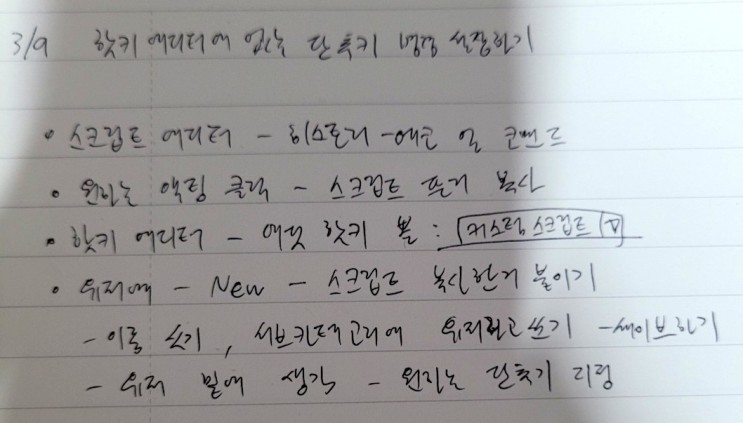 3/9 핫키 에디터에 없는 단축키 명령 설정하기
• 스크립트 에디터 - 히스토리 - 에코 올 코맨드
• 원하는 액팅 클릭 - 스크립트 뜬거 복사
• 핫키 에디터 - 에딧 핫키 폴 : 커스텀 스크립트 ▽
• 유저에 - New - 스크립트 복사한거 붙이기
- 이름 쓰기, 서브카테고리에 유저라고 쓰기 - 세이브하기
- 유저 밑에 생김 - 원하는 단축키 지정